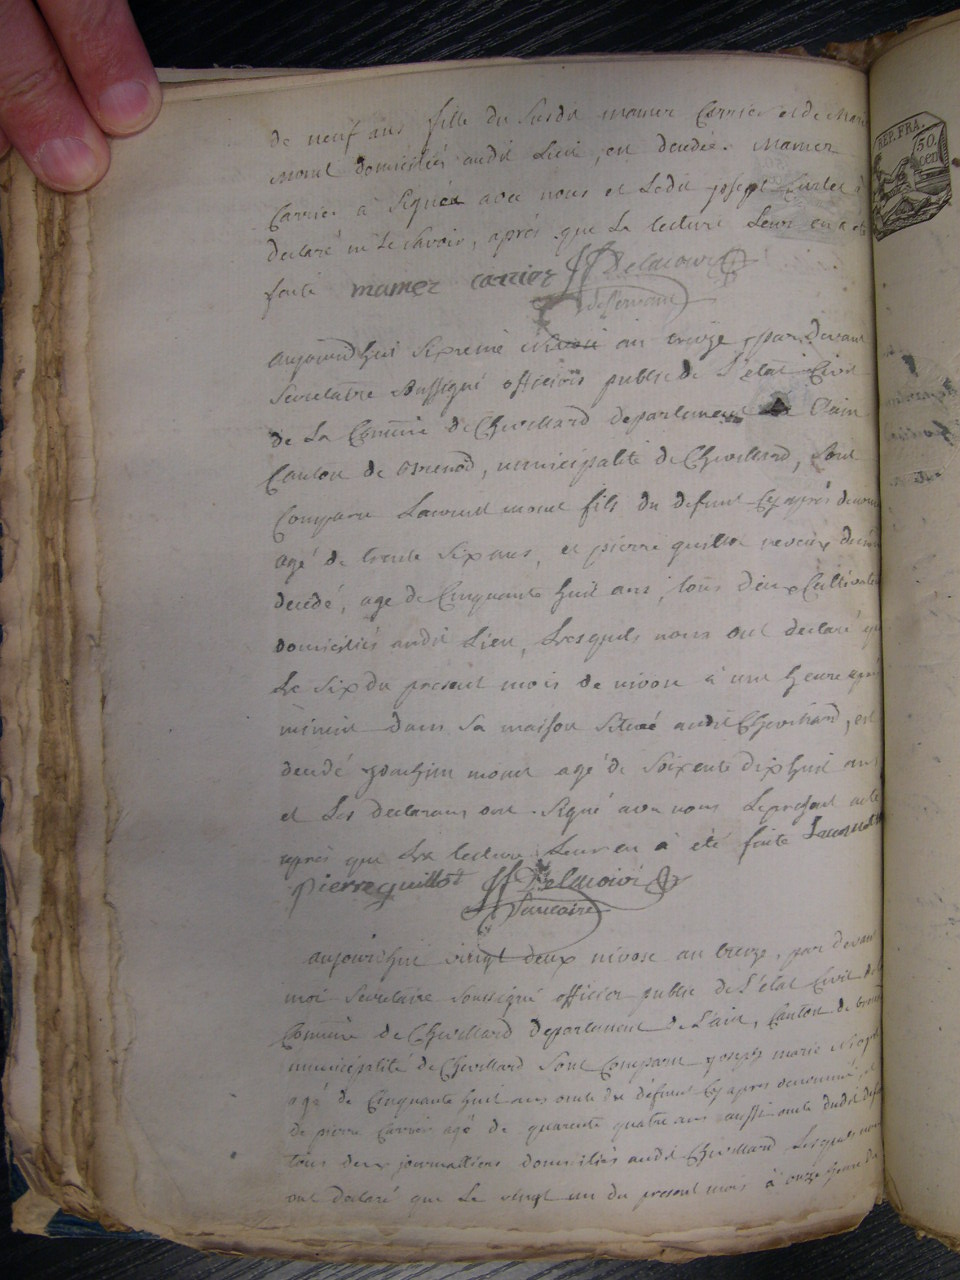 de neuf ans fille du susdit mamer Carrier et de Mari
monet domiciliés audit Lieu, est decedée. Mamer
Carrier à signéa avec nous et Ledit joseph
declaré ne le savoir, aprés que La lecture Leur en a eté
faite mamer carrier Delacour
REP. FRA.
50.
cen
aujourd'hui sixieme nivose an treize, par devant
secretaire soussigné officiers public de L'etat Civil
de La Comune de Chevillard departement de L'ain
Canton de brenod, municipalité de Chevillard, sont
Comparu Laurent monet fils du defunt Cy aprés denom
agé de trente six ans, et pierre guillot neveux du
decedé, age de Cinquante huit ans, tous deux Cultivate
domiciliés audit Lieu, Lesquels nous ont declaré que
Le six du present mois de nivose à une heure apré
minuit dans sa maison située audit Chevillard, est
decedé joachim monet agé de soixente dix huit ans
et Les declarans ont signé avec nous Le present acte
aprés que La lecture Leur en à été faite
Pierre guillot Delacour
aujourdhui vingt deux nivose an treize, par devant
moi secretaire soussigné officier public de L'état Civil de la
Comune de Chevillard departement de L'ain, Canton de breno
municipalité de Chevillard sont Comparu joseph marie
agé de Cinquante huit ans oncle du défunt Cy aprés denommé, et
de pierre Carrier agé de quarente quatre ans aussi oncle dudit defu
tous deux journalliers domiciliés audit Chevillard Lesquels nous
ont declaré que Le vingt un du present mois à onze heure du